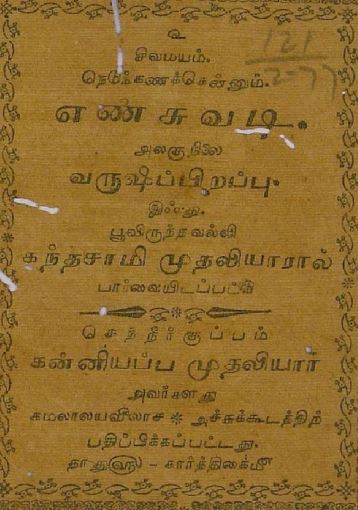 உ
121
2077
சிவமயம்.
நெடுங்கணக்கென்னும்.
எண்சுவடி.
அலகுநிலை
வருஷப்பிறப்பு.
இஃது.
பூவிருந்தவல்லி
கந்தசாமி முதலியாரால்
பார்வையிடப்பட்டு
செந்நீர்குப்பம்
கன்னியப்ப முதலியார்
அவர்களது
கமலாலயவிலாச * அச்சுக்கூடத்திற்
பதிப்பிக்கப்பட்டது.
தாது௵ - கார்த்திகை௴